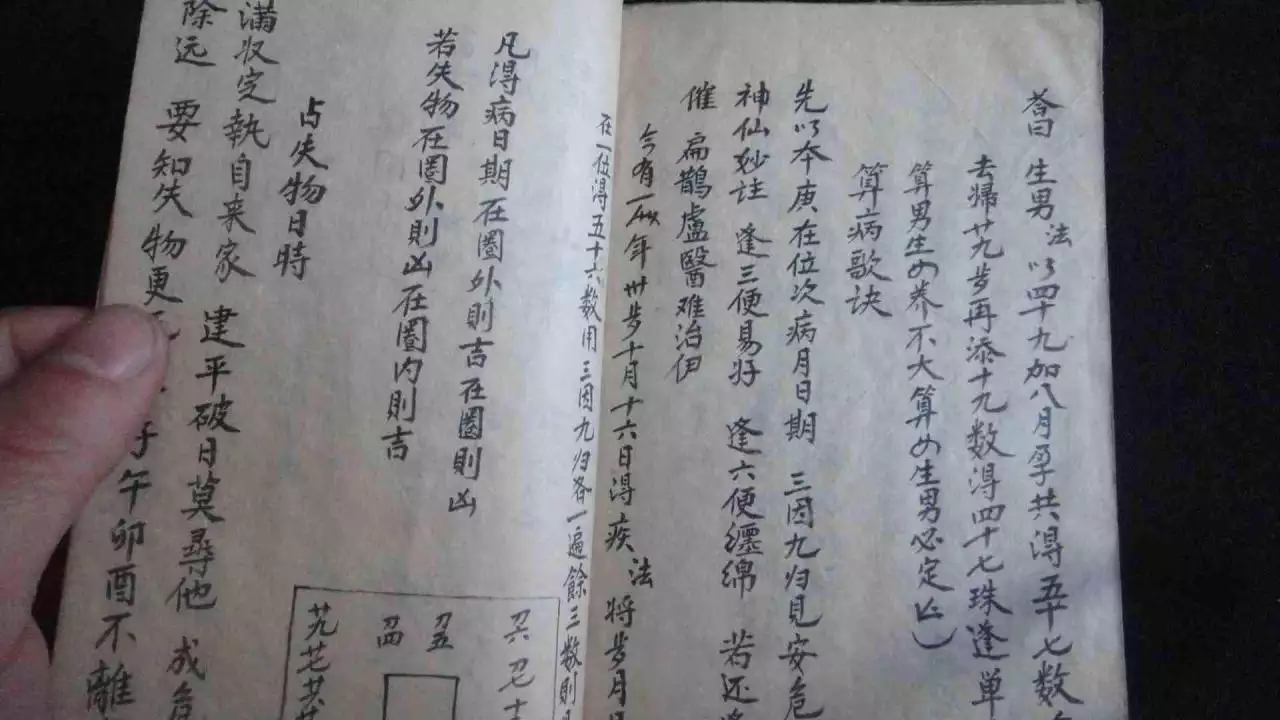 荅曰 生男 法以四十九加八月孕共得五十七数
去帰廿九步再添十九数得四十七珠逢单
算男生女养不大算女生男必定亡
算病歌诀
先以本庚在位次病月日期 三因九归見安危
神仙妙註 逢三便易好 逢六便缠绵 若还逢
催 扁鹊盧醫难治伊
今有一人年卅步十月十六日得疾 法 将步月日
在一位得五十六数用三因九归各一遍餘三数則
凡得病日期在圈外則吉在圈則凶
若失物在圈外則凶在圈内則吉
初六 初七
初五
初四
廿九 廿七
占失物日時
满収定執自来家 建平破日莫尋他 成危
除远 要知失物更 子午卯酉不離